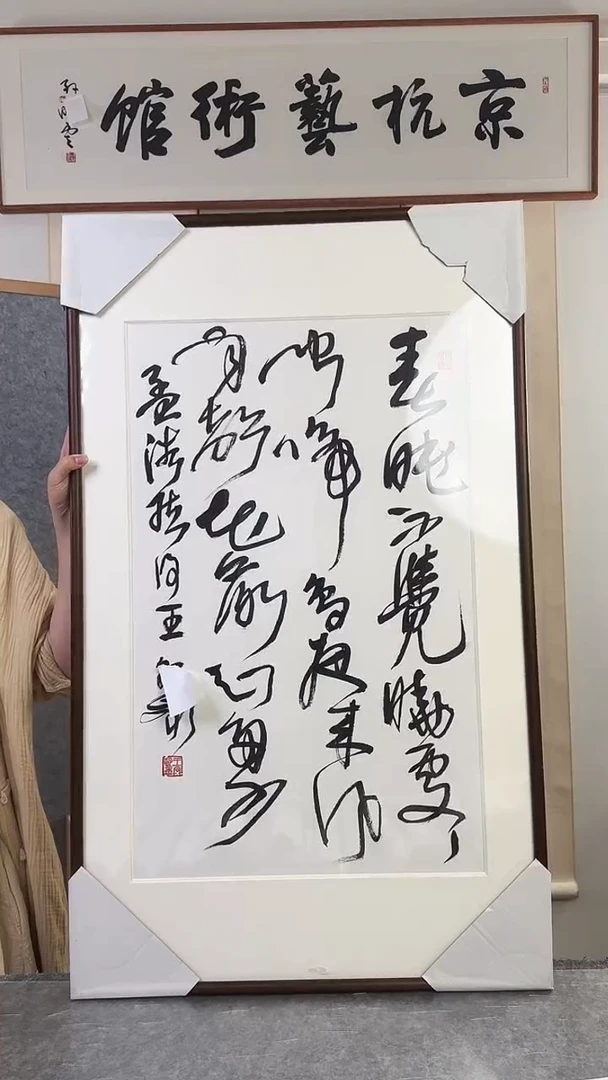 京杭藝術館
春眠不覺曉處々
聞啼鳥夜来風
雨聲花落知多少
孟浩然詩王